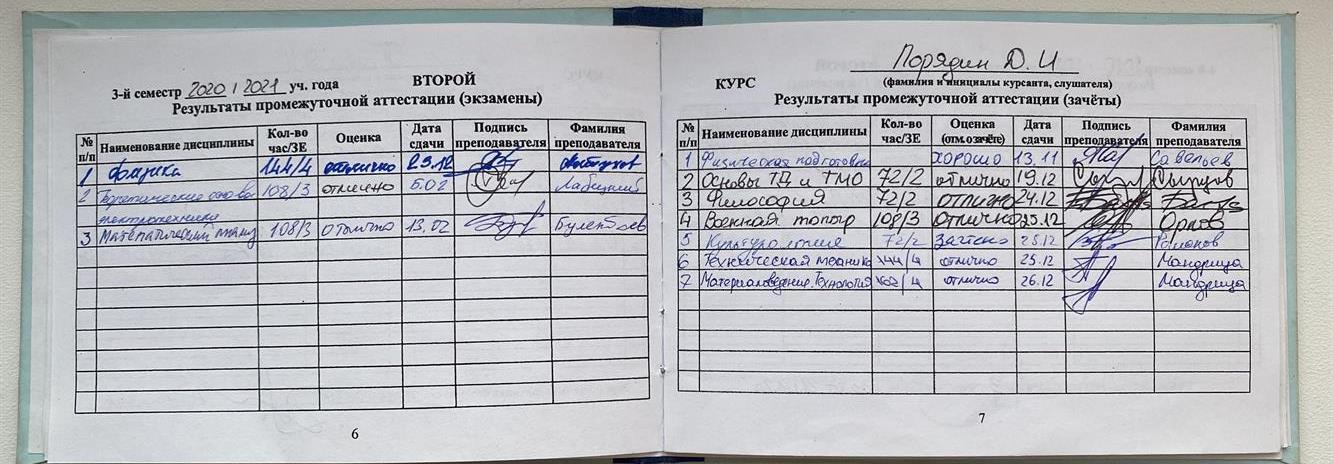 3-й семестр 2020 / 2021 уч. года ВТОРОЙ
Результаты промежуточной аттестации (экзамены)
№ п/п Наименование дисциплины Кол-во час/ЗЕ Оценка Дата сдачи Подпись преподавателя Фамилия преподавателя
1 Физика 144/4 отлично 29.12
2 Теоретические основы 108/3 отлично 5.02 Лабецкий
электротехники
3 Математический анализ 108/3 отлично 13.02
6
Порядин Д. И
КУРС (фамилия и инициалы курсанта, слушателя)
Результаты промежуточной аттестации (зачёты)
№ п/п Наименование дисциплины Кол-во час/ЗЕ Оценка (отм.о зачёте) Дата сдачи Подпись преподавателя Фамилия преподавателя
1 Физическая подготовка хорошо 13.11 Савельев
2 Основы ТД и ТМО 72/2 отлично 19.12
3 Философия 72/2 отлично 24.12
4 Военная топогр 108/3 отлично 25.12 Орлов
5 Культурология 72/2 Зачтено 25.12 Романов
6 Техническая механика 144/4 отлично 25.12 Мандрица
7 Материаловедение. Технология отлично 26.12 Мандрица
7